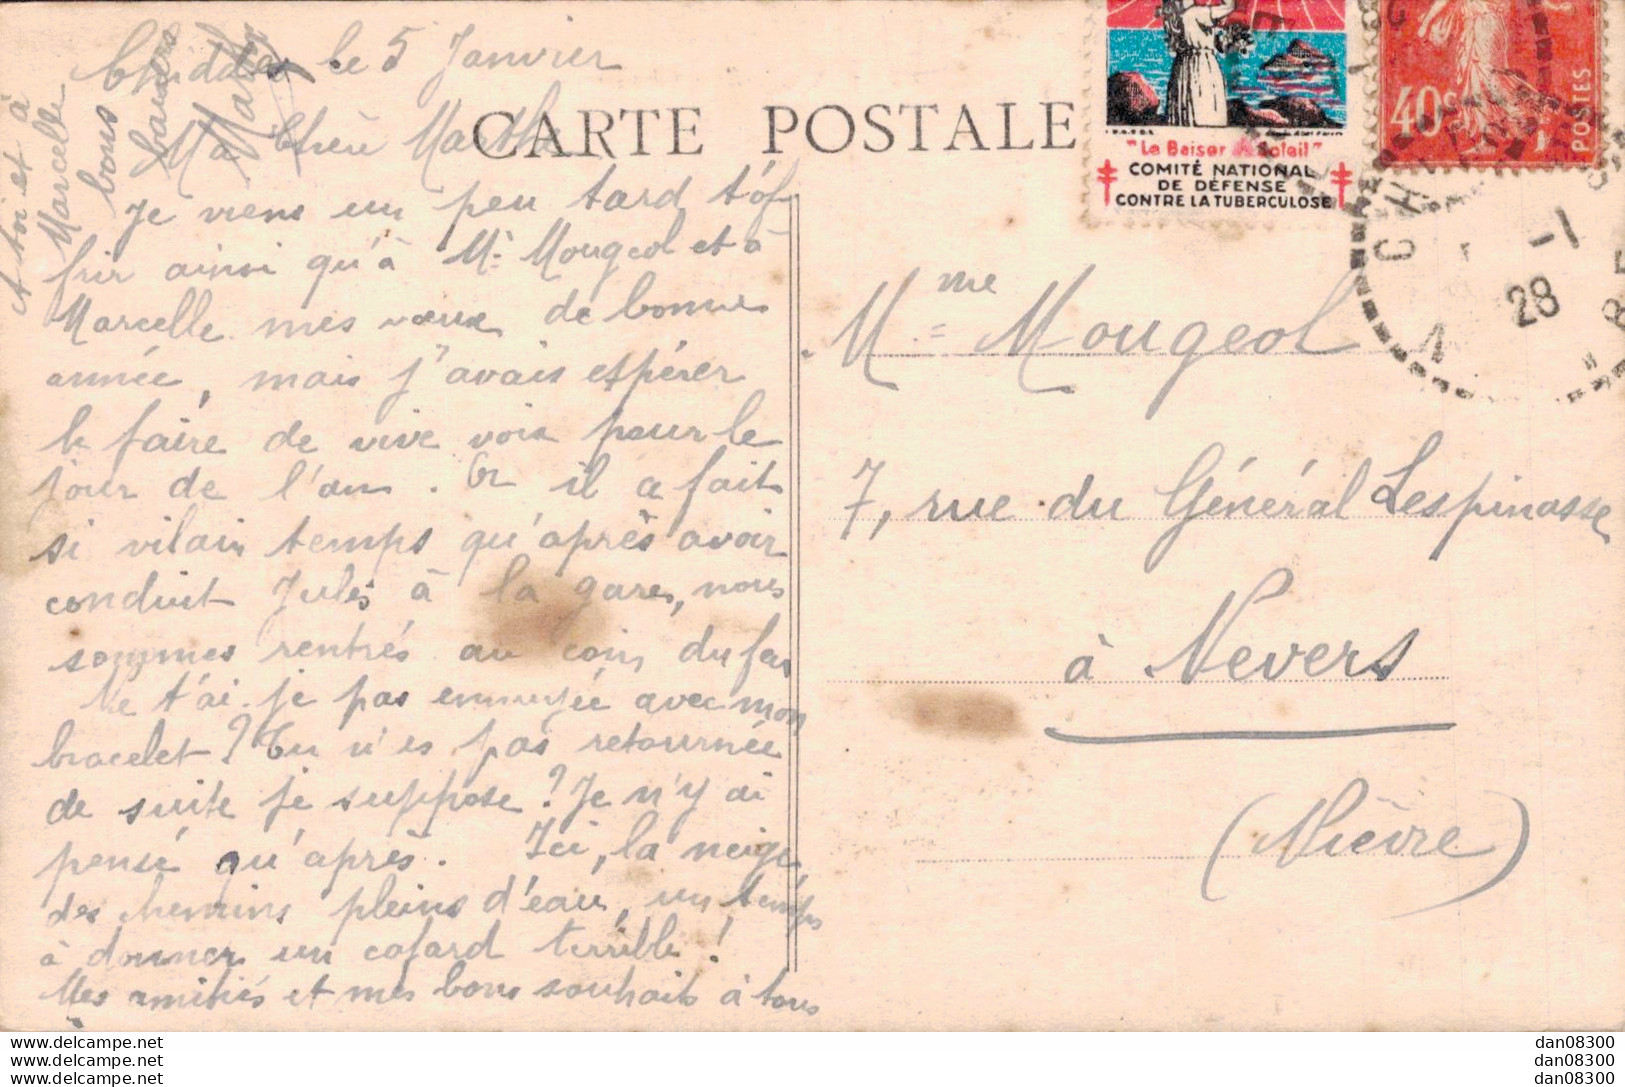 le 5 Janvier
Ma Chère Marthe
CARTE POSTALE
Je viens un peu tard t'of
frir ainsi qu'à Mr Mougeol et à
Marcelle mes vœux de bonne
année, mais j'avais espérer
le faire de vive voix pour le
jour de l'an. Or il a fait
si vilain temps qu'après avoir
conduit Jules à la gare, nous
sommes rentrés au coin du feu
Ne t'ai-je pas ennuyée avec mon
bracelet? Tu n'es pas retournée
de suite je suppose? Je n'y ai
pensé qu'après. Ici, la neige
des chemins pleins d'eau, un temps
à donner un cafard terrible!
Mes amitiés et mes bons souhaits à tous
A toi et à
Marcelle
bons
baisers
"Le Baiser au Soleil"
COMITÉ NATIONAL
DE DÉFENSE
CONTRE LA TUBERCULOSE
40c
POSTES
-1
28
Mme Mougeol
7, rue du Général Lespinasse
à Nevers
(Nièvre)
dan08300
dan08300
dan08300
dan08300
dan08300
dan08300